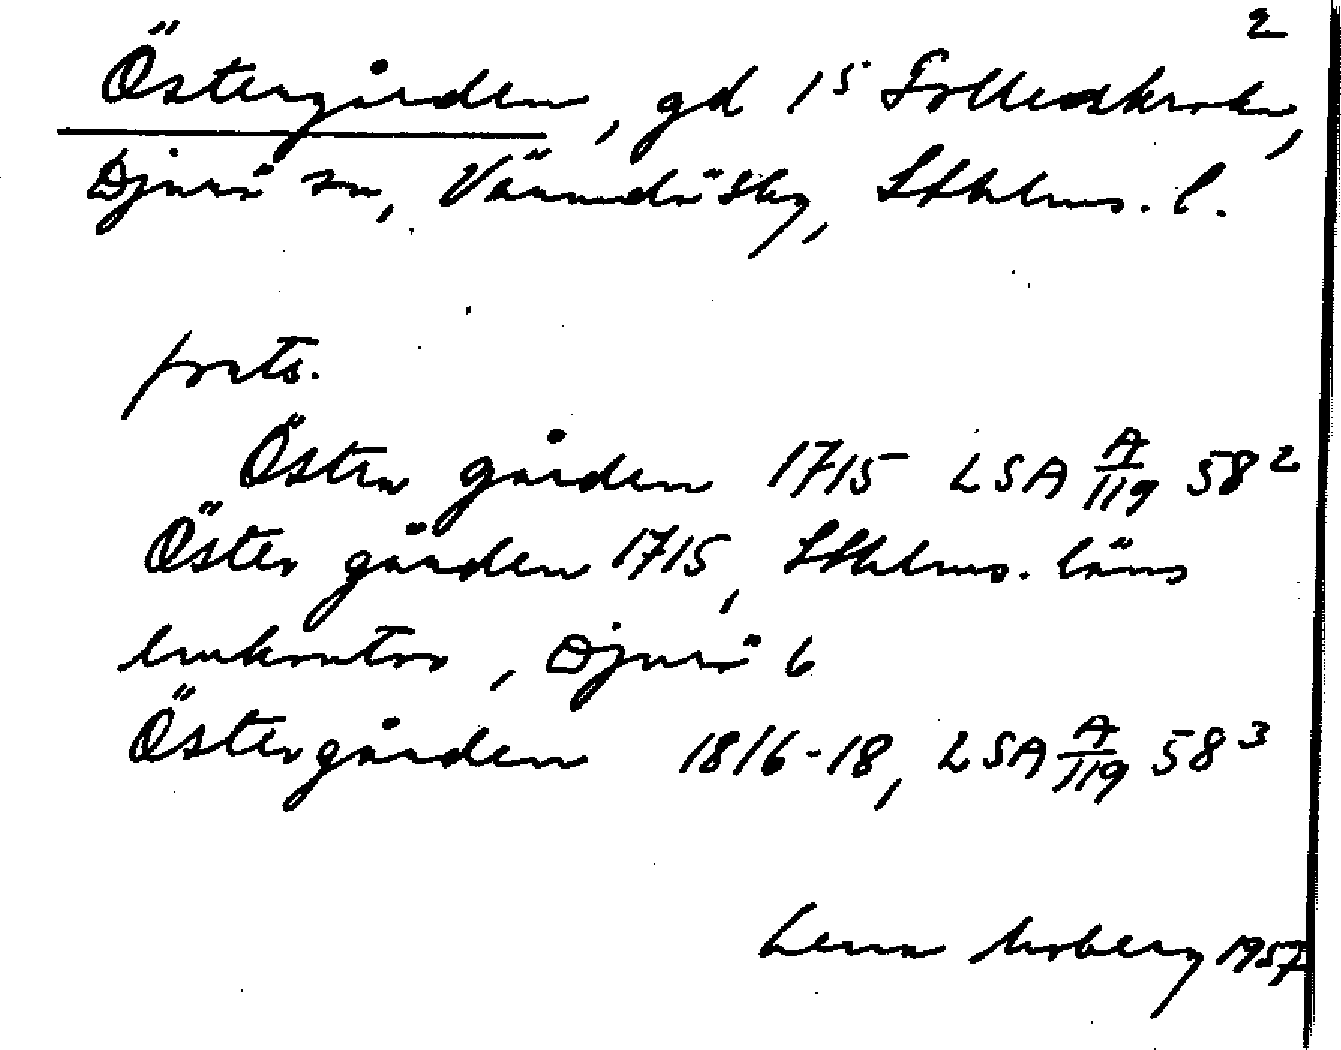 2
Östergården, gd 1⁵ Sollenkroka,
Djurö sn, Värmdö Skg, Sthlms. l.
forts.
Östra gården 1715 LSA A/119 58²
Öster gården 1715, Sthlms. läns
lmkontor, Djurö 6
Östergården 1816-18, LSA A/119 58³
Lena Moberg 1957